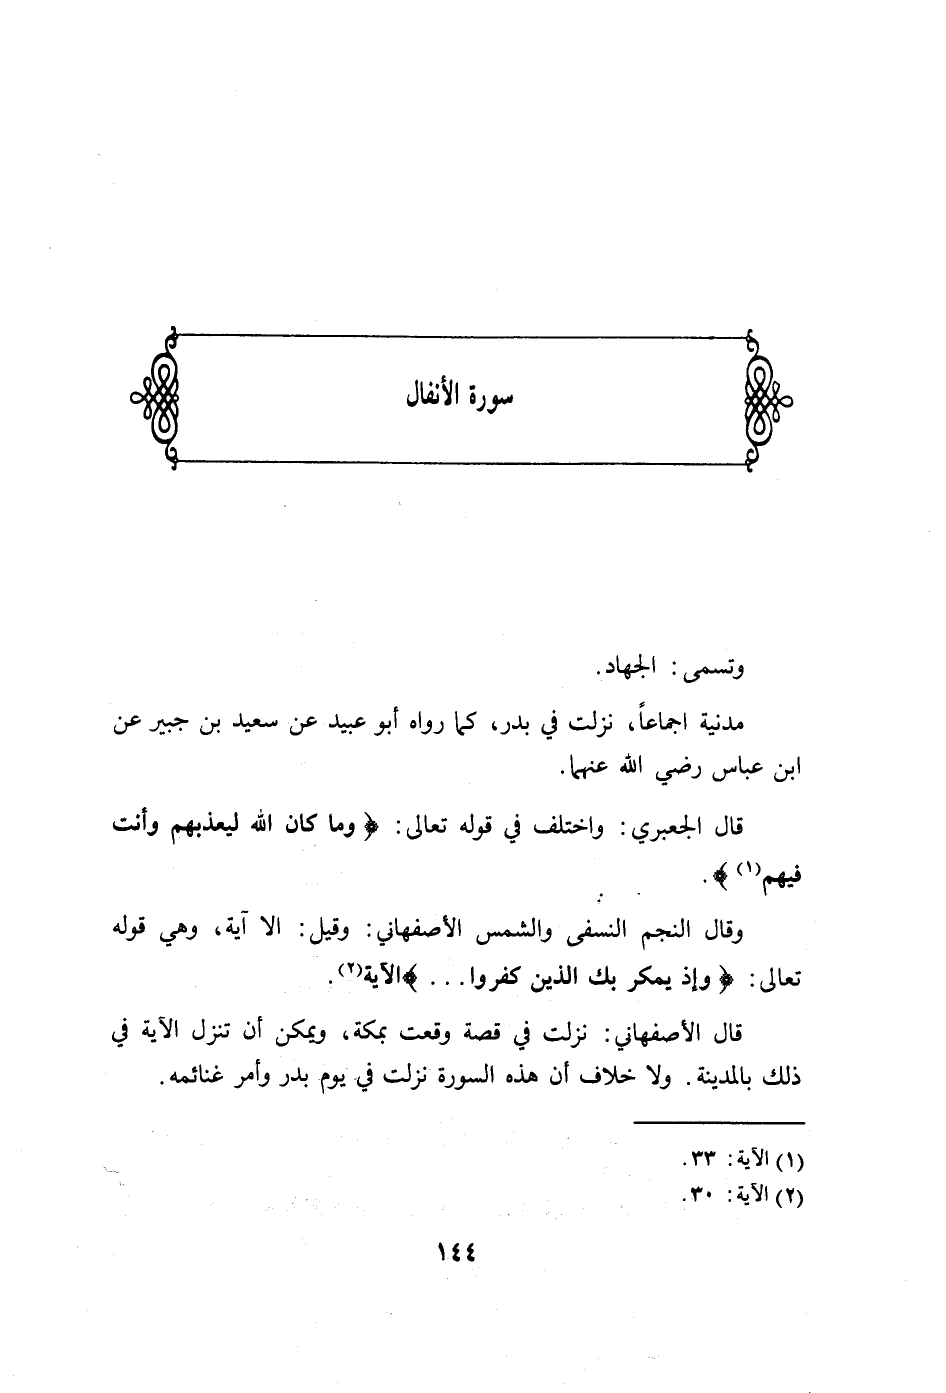 سورة الأنفال
وتسمى: الجهاد.
مدنية اجماعاً، نزلت في بدر، كما رواه أبو عبيد عن سعيد بن جبير عن
ابن عباس رضي الله عنهما.
قال الجعبري: واختلف في قوله تعالى: ﴿ وما كان الله ليعذبهم وأنت
فيهم(١) ﴾.
وقال النجم النسفى والشمس الأصفهاني: وقيل: الا آية، وهي قوله
تعالى: ﴿ وإذ يمكر بك الذين كفروا... ﴾الآية(٢).
قال الأصفهاني: نزلت في قصة وقعت بمكة، ويمكن أن تنزل الآية في
ذلك بالمدينة. ولا خلاف أن هذه السورة نزلت في يوم بدر وأمر غنائمه.
(١) الآية: ٣٣.
(٢) الآية: ٣٠.
١٤٤